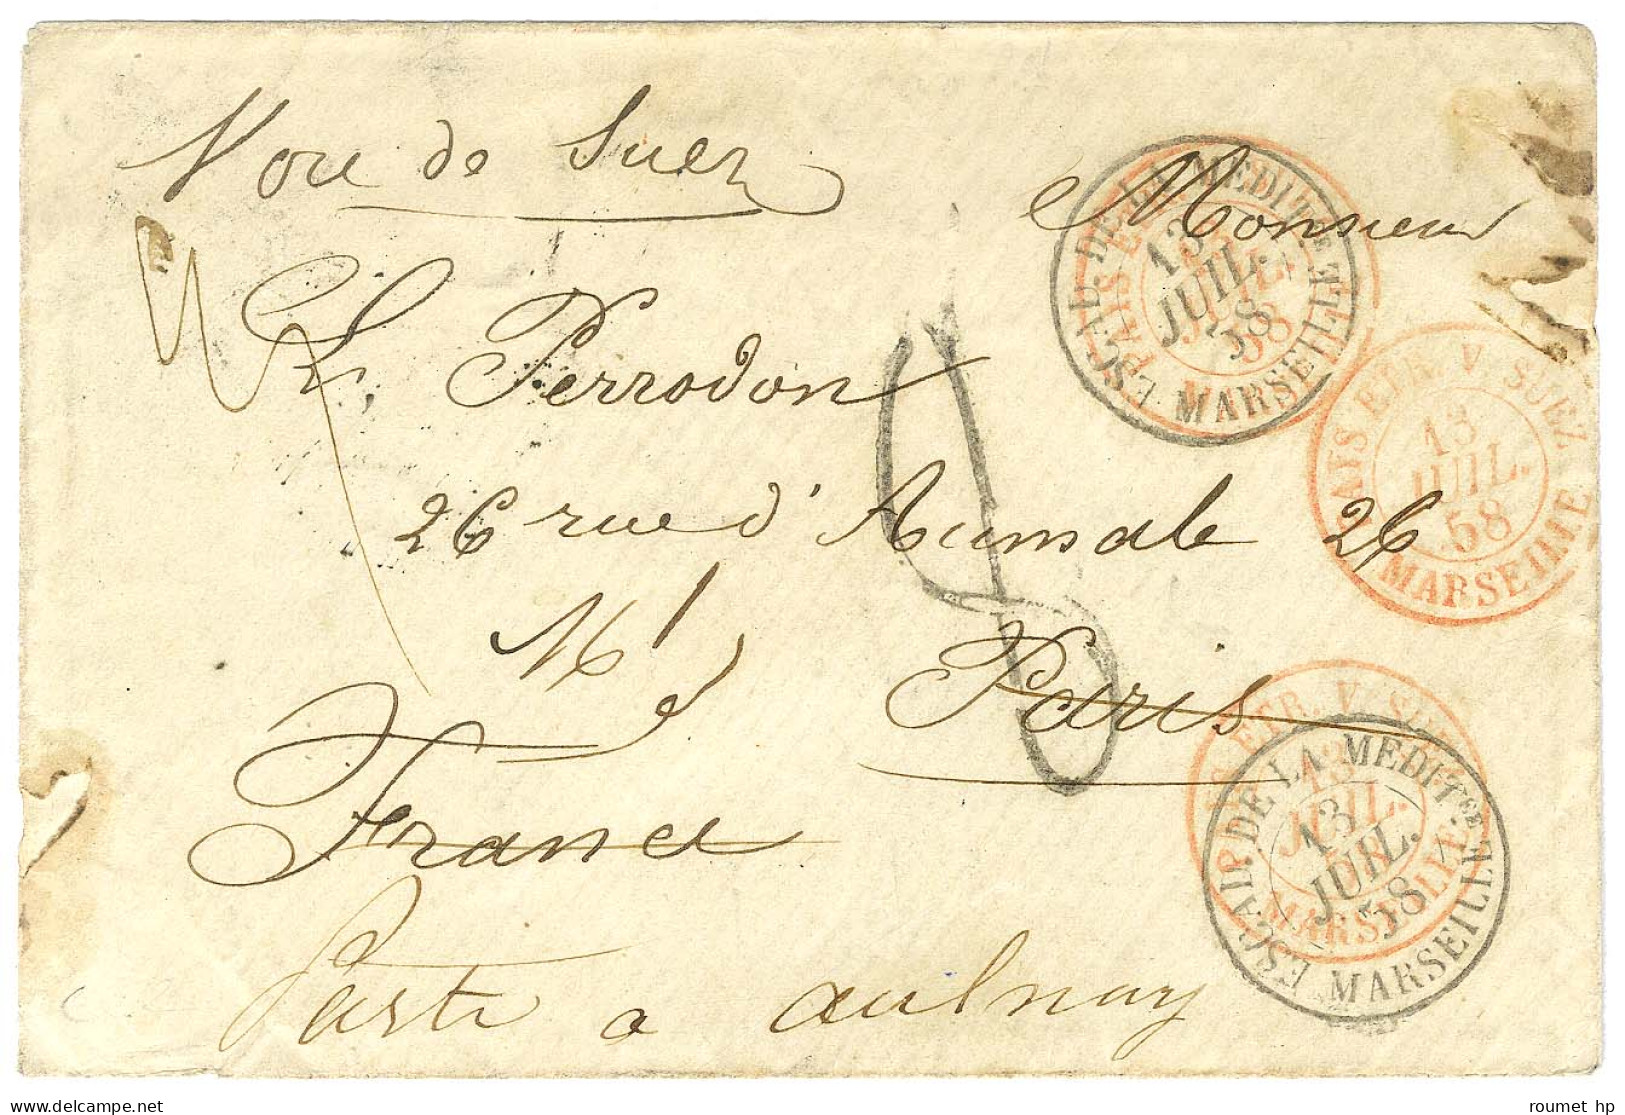 Voie de Suez
Monsieur
L. Perrodon
26 rue d'Aumale 26
Paris
France
Parti a aulnay
ESCAD. DE LA MEDIT.EE MARSEILLE
13
JUIL.
58
PAYS ETR. V. SUEZ MARSEILLE
13
JUIL.
58
PAYS ETR. V. SUEZ MARSEILLE
13
JUIL.
58
ESCAD. DE LA MEDIT.EE MARSEILLE
13
JUIL.
58
roumet hp